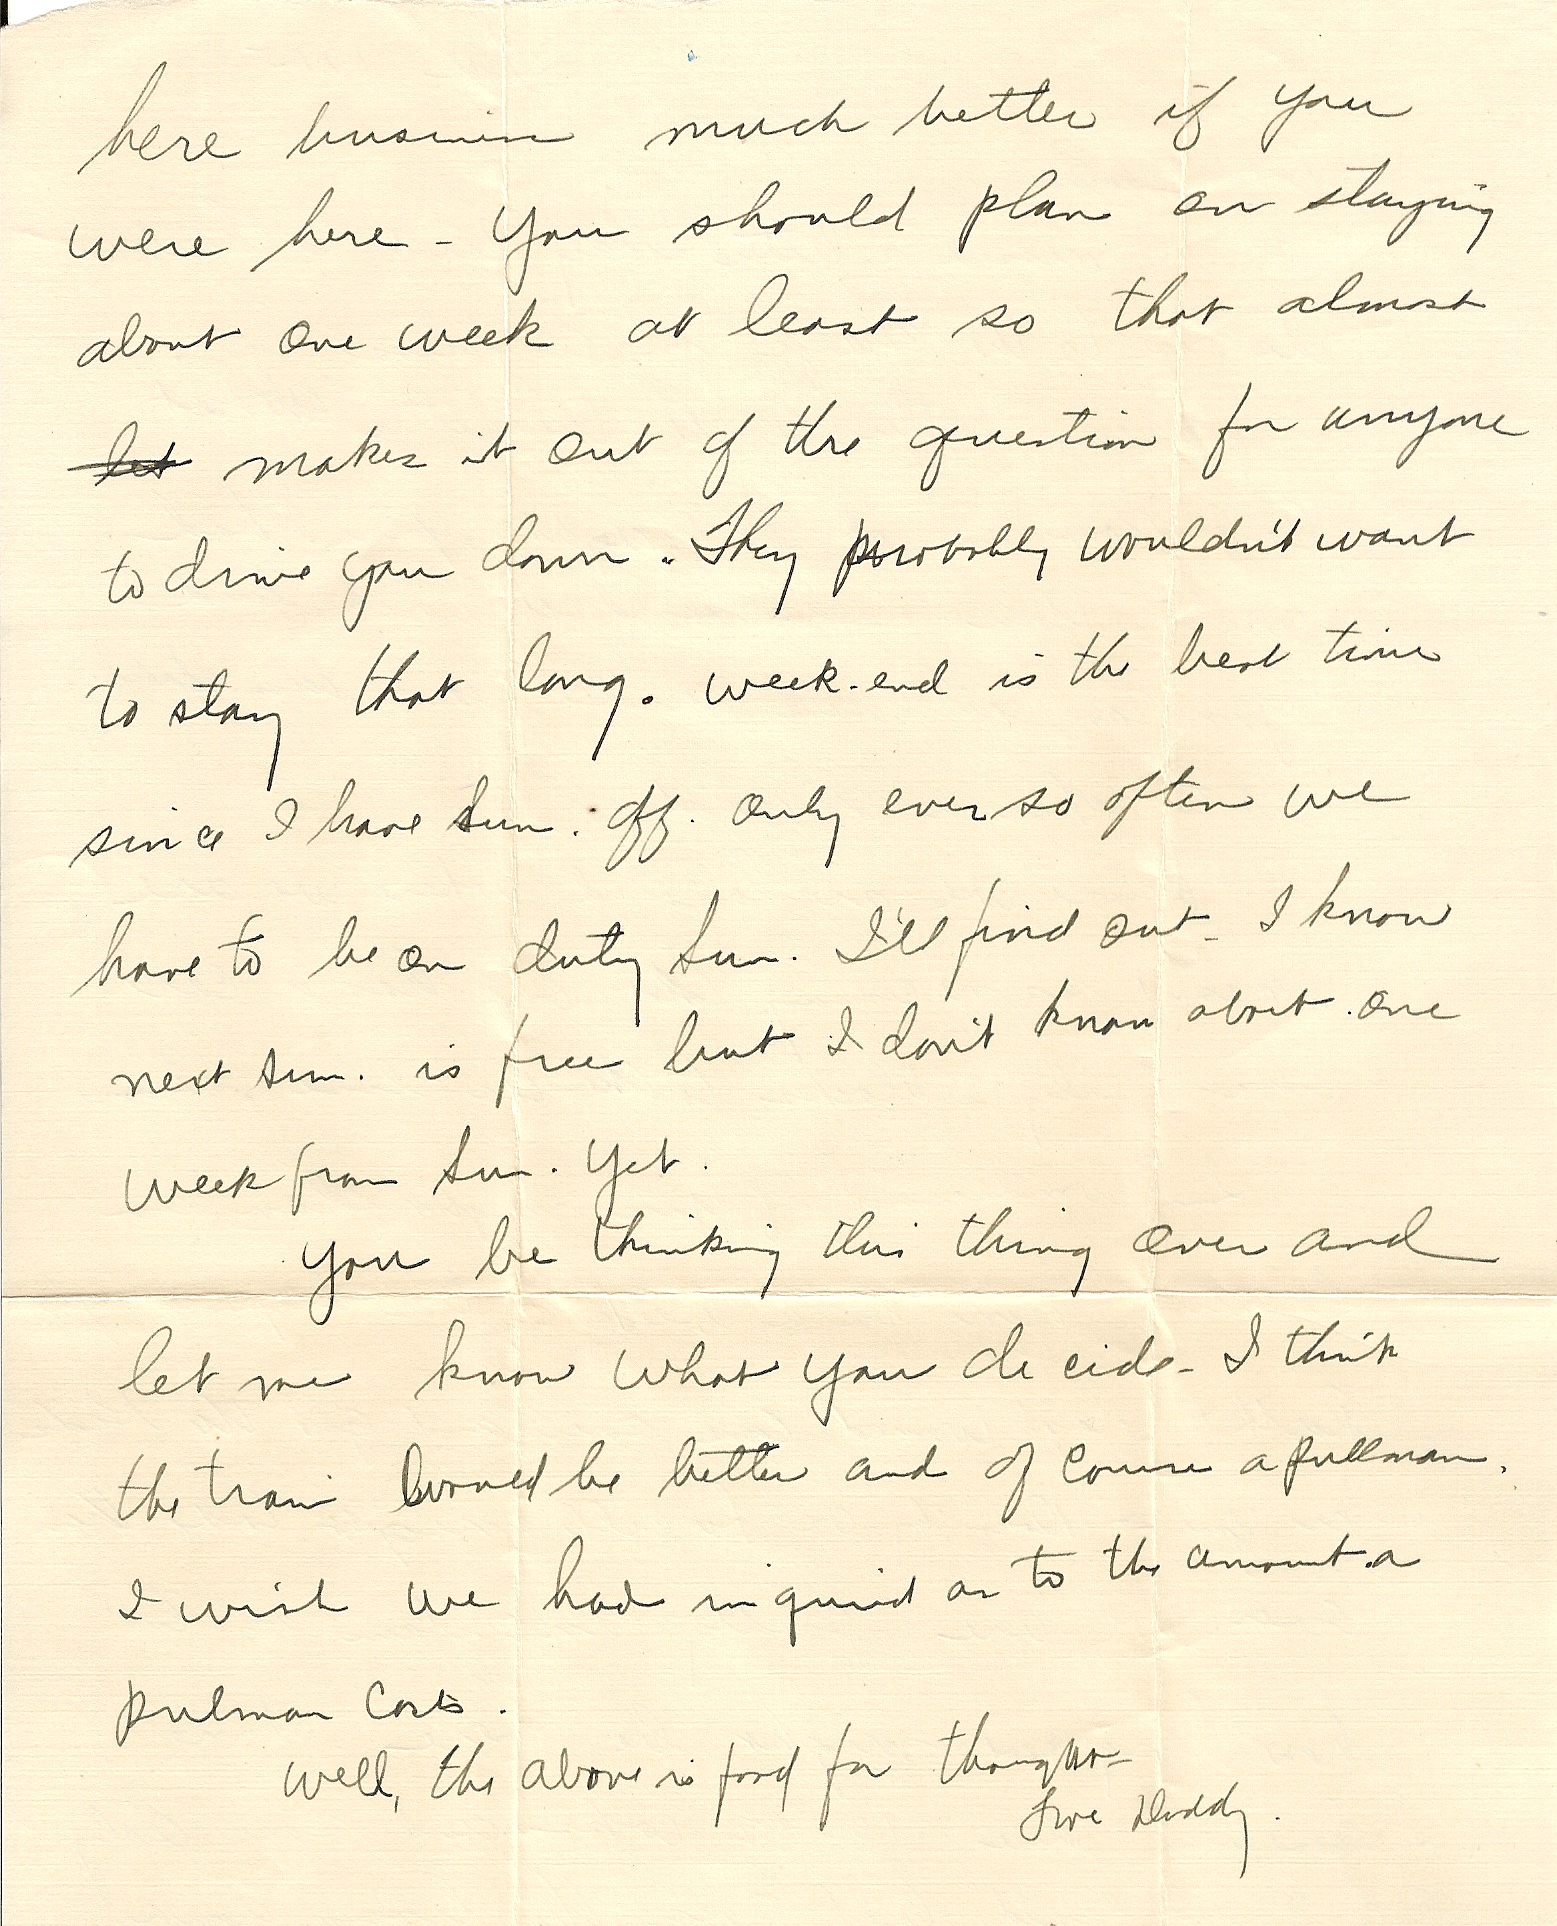 here business much better if you
were here - You should plan on staying
about one week at least so that almost
let makes it out of the question for anyone
to drive you down. They probably wouldn't want
to stay that long. week-end is the best time
since I have Sun. off. Only ever so often we
have to be on duty Sun. I'll find out - I know
next Sun. is free but I don't know about one
week from Sun. yet.
You be thinking this thing over and
let me know what you decide - I think
the train would be better and of course a pullman.
I wish we had inquired as to the amount a
pulman costs.
Well, the above is food for thought -
Love Daddy.